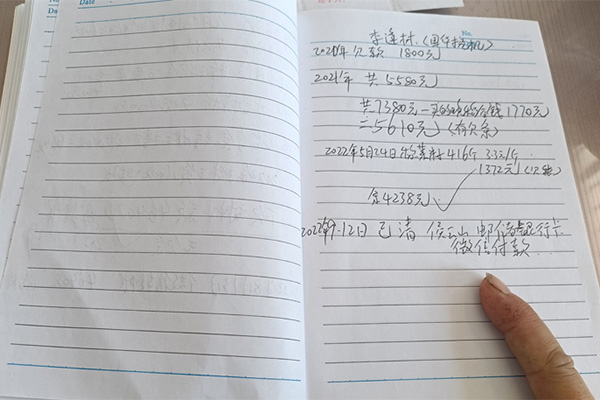 Date
Date
No.
李连材（国华挖机）
2020年 欠款 1800元
2021年 共5580元
共7380元 — 买的 钱 1770元
= 5610元（有欠条）
2022年5月24日 416个 3.3元/个
1372元（欠账）
余4238元
2022年9.12日 已清 侯云山 邮储银行卡
微信付款...